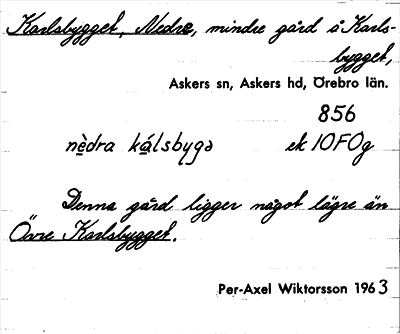 Karlsbygget, Nedre, mindre gård å Karls-
bygget,
Askers sn, Askers hd, Örebro län.
856
nèdra kálsbygə ek 10FOg
Denna gård ligger något lägre än
Övre Karlsbygget.
Per-Axel Wiktorsson 1963